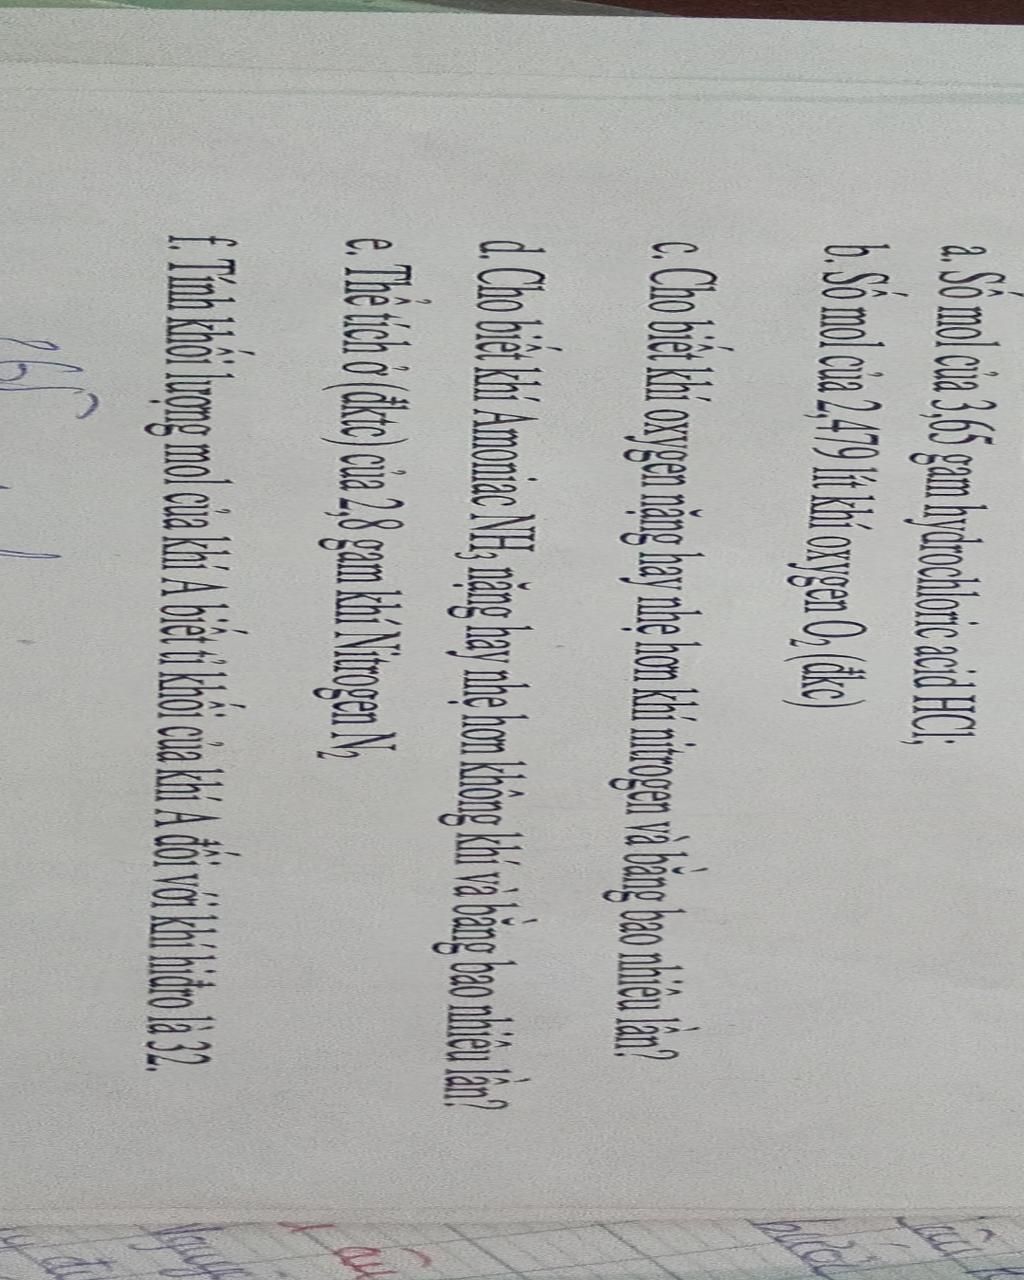 a. Số mol của 3,65 gam hydrochloric acid HCl;
b. Số mol của 2,479 lít khí oxygen O₂ (đkc)
c. Cho biết khí oxygen nặng hay nhẹ hơn khí nitrogen và bằng bao nhiêu lần?
d. Cho biết khí Amoniac NH₃ nặng hay nhẹ hơn không khí và bằng bao nhiêu lần?
e. Thể tích ở (đktc) của 2,8 gam khí Nitrogen N₂
f. Tính khối lượng mol của khí A biết tỉ khối của khí A đối với khí hiđro là 32.